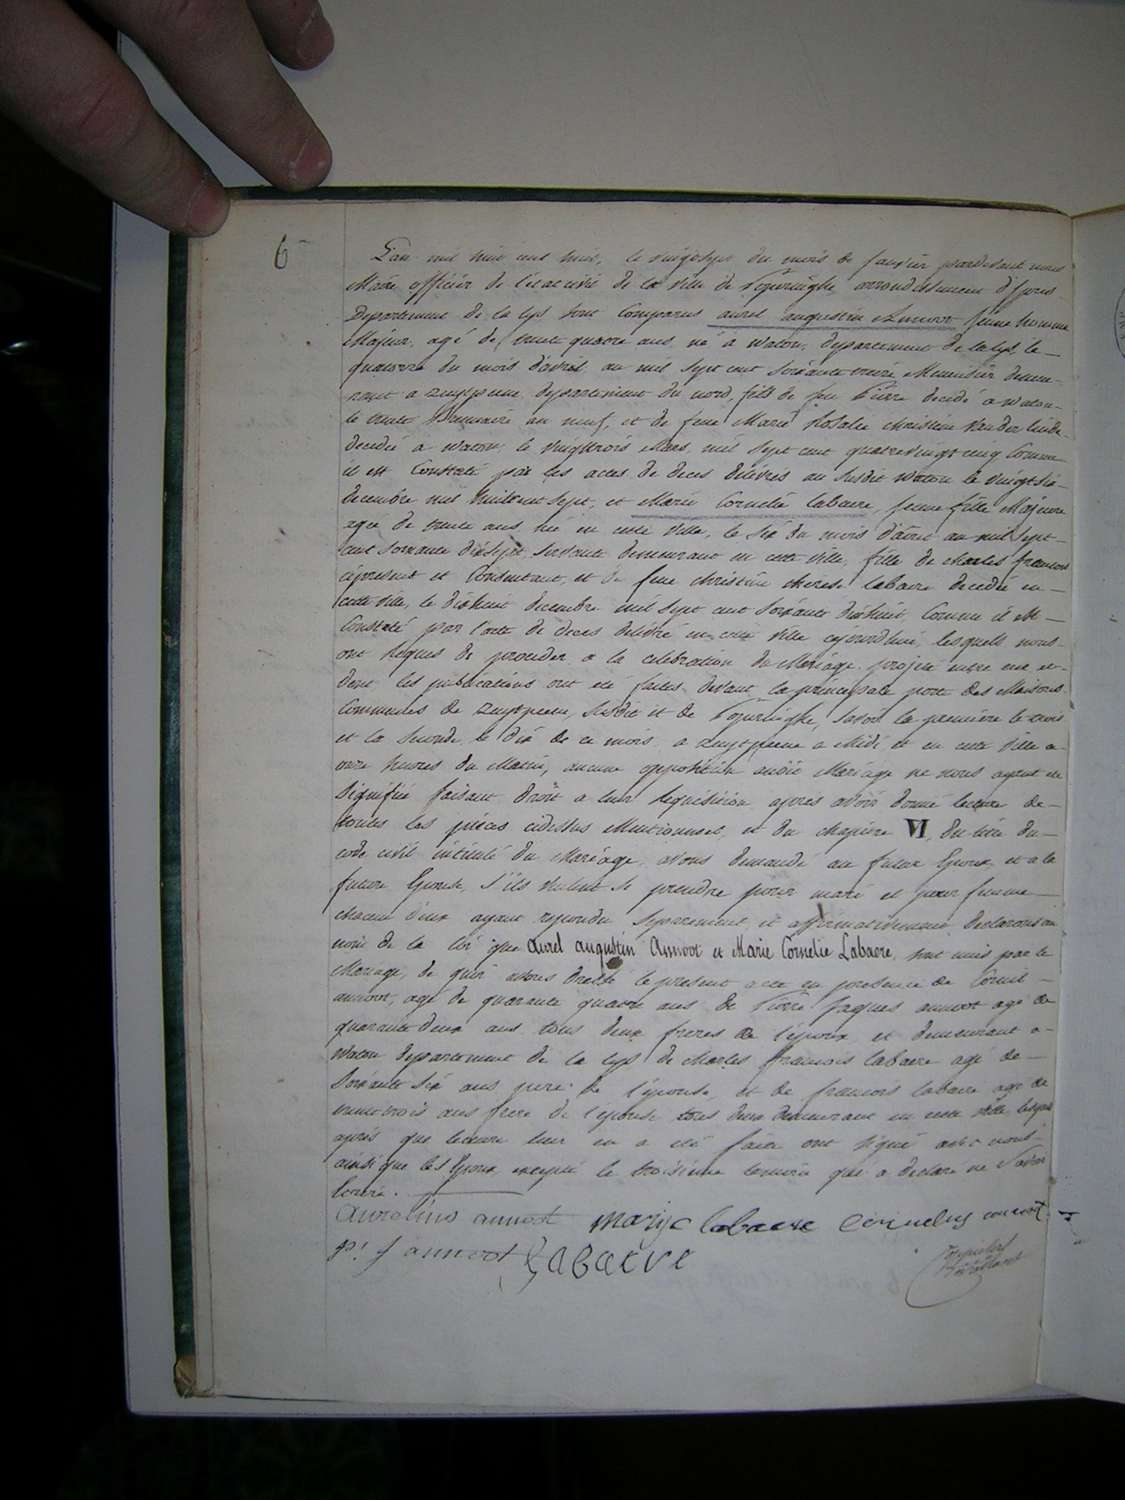 6
L'an mil huit cent huit, le vingt sept du mois de janvier pardevant nous
Maire officier de l'état civil de la ville de Poperinghe, arrondissement d'Ypres
Departement de la Lys sont comparus aurel augustin Annoot jeune homme
Majeur, agé de trente quatre ans, né à Watou, departement de la Lys, le
quatorze du mois d'avril, an mil sept cent soixante treize Menuisier demeu-
rant a Zuytpeene departement du nord, fils de feu Pierre decedé a Watou
le trente Brumaire an neuf, et de feue Marie Rosalie Christine Vander
decedée à Watou, le vingt trois Mars, mil sept cent quatre vingt cinq Comme
il est Constaté par les actes de deces delivrés au susdit Watou le vingt six
decembre mil huit cent sept, et Marie Cornelie Labaere, jeune fille Majeure
agée de trente ans née en cette ville, le six du mois d'avril an mil sept
cent soixante dix sept, servante demeurant en cette ville, fille de Charles francois
ci present et Consentant, et de feue Christine therese Labaere decedée en
cette ville, le dixhuit decembre mil sept cent soixante dixhuit, Comme il est
Constaté par l'acte de deces delivré en cette ville cejourdhui, lesquels nous
ont requis de proceder a la celebration du Mariage projeté entre eux et
dont les publications ont été faites devant la principale porte des Maisons
Communes de Zuytpeene, susdit et de Poperinghe, savoir la premiere le trois
et la seconde, le dix de ce mois, a Zuytpeene a Midi et en cette ville a
onze heures du Matin, aucune opposition audit Mariage ne nous ayant été
signifiée faisant droit a leur requisition, apres avoir donné lecture de
toutes les pièces cidessus Mentionnées, et du chapitre VI, du titre du
code civil intitulé du Mariage, avons demandé au futur Epoux, et a la
future Epouse, s'ils veulent se prendre pour mari et pour femme
chacun d'eux ayant repondu separement et affirmativement declarons au
nom de la loi que Aurel augustin Annoot et Marie Cornelie Labaere, sont unis par le
Mariage, de quoi avons dressé le present acte en presence de Corneil
annoot, agé de quarante quatre ans de Pierre Jaques annoot agé de
quarante deux ans tous deux freres de l'époux et demeurant a
Watou departement de la Lys de Charles francois Labaere agé de
soixante six ans pere de l'épouse, et de francois Labaere agé de
trente trois ans frere de l'épouse tous deux demeurant en cette ville lesquels
après que lecture leur en a été faite ont signé avec nous
ainsi que les Epoux excepté le troisieme temoin qui a declaré ne savoir
Ecrire.
Aurelius annoot marije labaere Cornelis annoot
P: J annoot Labaere